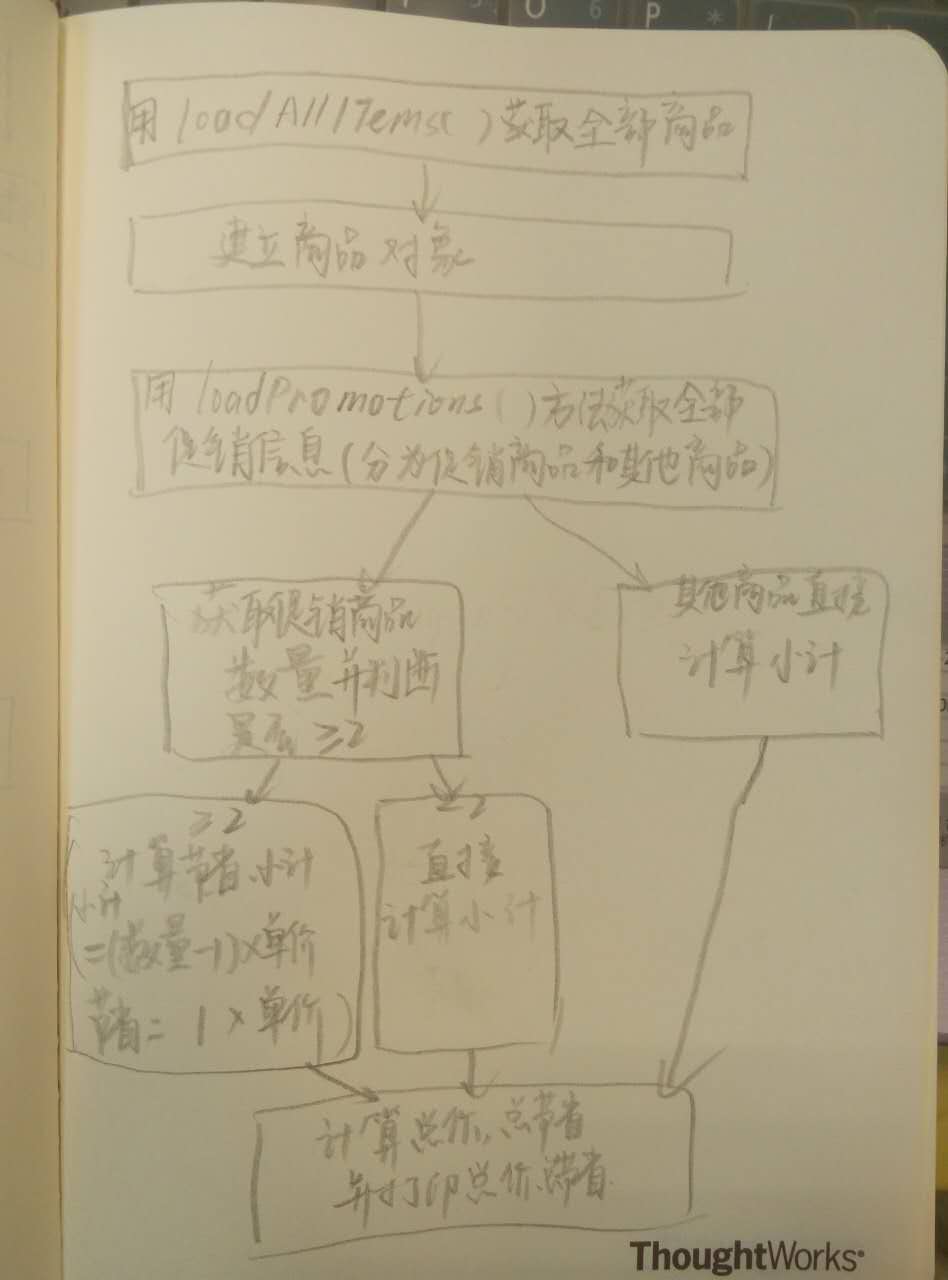 用 loadAllITems( ) 获取全部商品
建立商品对象
用 loadPromotions( )方法获取全部
促销信息(分为促销商品和其他商品)
获取促销商品
数量并判断
是否 ≥2
其他商品直接
计算小计
≥2
计算节省、小计
小计
=(数量-1)×单价
节省= 1×单价)
2
直接
计算小计
计算总价、总节省
并打印总价、总节省.
ThoughtWorks®
O 6 P *